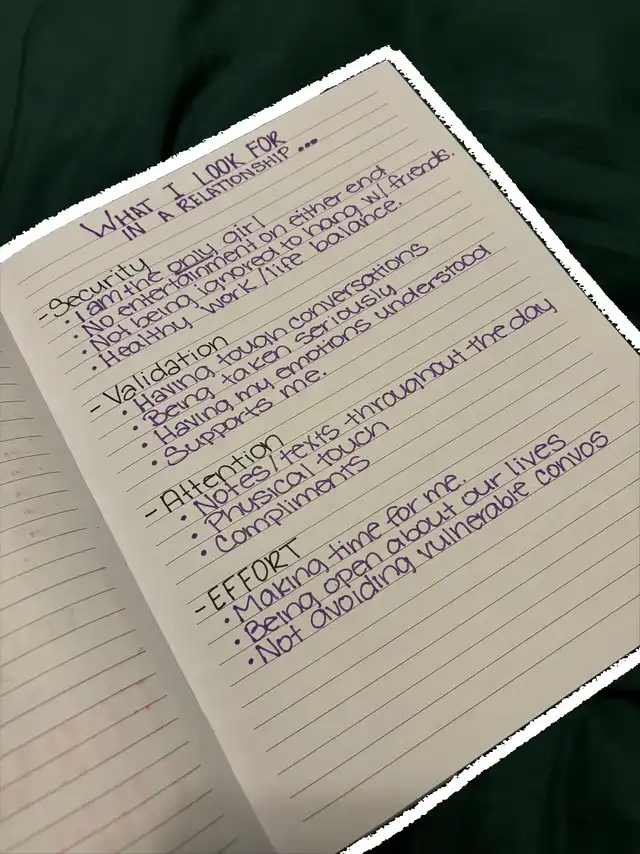 WHAT I LOOK FOR
IN A RELATIONSHIP...
- Security
• I am the only girl
• No entertainment on either end
• Not being ignored to hang w/ friends.
• Healthy work/life balance.
- Validation
• Having tough conversations
• Being taken seriously
• Having my emotions understood
• Supports me.
- Attention
• Notes/texts throughout the day
• Physical touch
• Compliments
- EFFORT
• Making time for me.
• Being open about our lives
• Not avoiding vulnerable convos